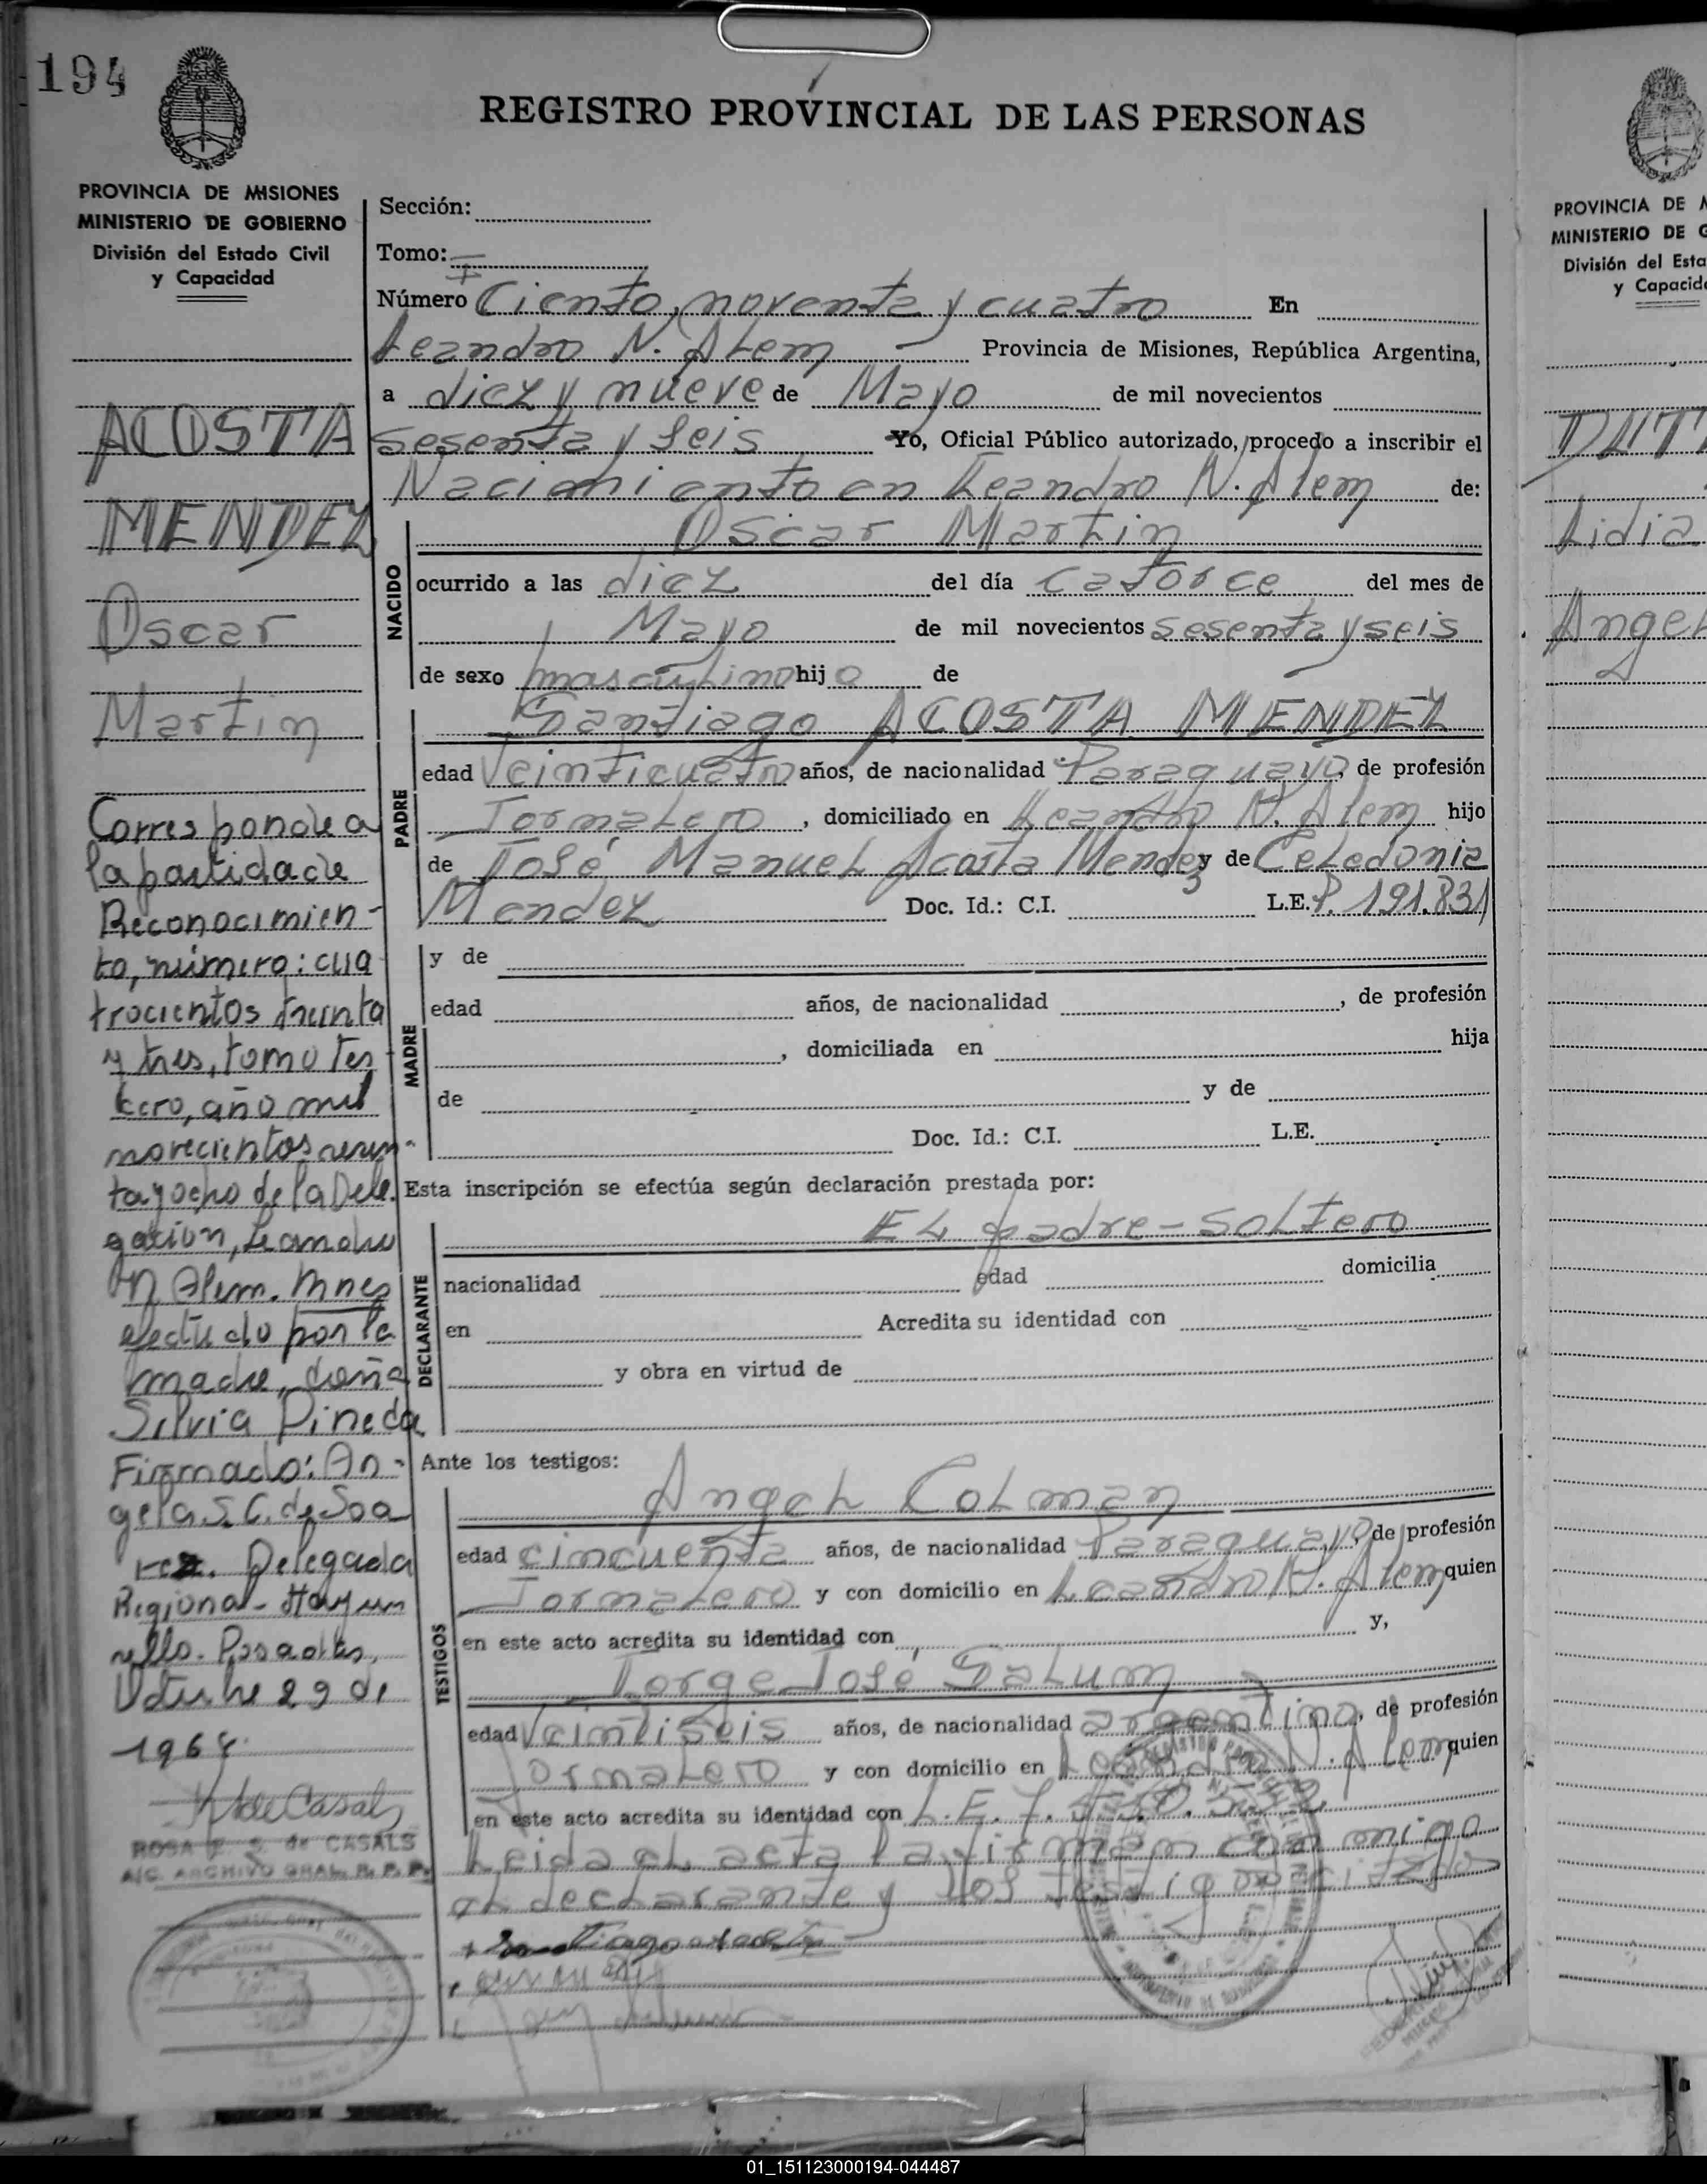 194
REGISTRO PROVINCIAL DE LAS PERSONAS
PROVINCIA DE MISIONES
MINISTERIO DE GOBIERNO
División del Estado Civil
y Capacidad
ACOSTA
MENDEZ
Oscar
Martin
Corresponde a
la partida de
Reconocimien-
to, número: cua
trocientos treinta
y tres, tomo ter
cero, año mil
novecientos sesen-
ta y ocho de la Dele.
gación, Leandro
N Alem. Mnes
efectuado por la
madre, doña
Silvia Pineda
Firmado: An-
gela S. C. de Soa
rez. Delegada
Regional - Hay un
sello. Posadas,
Octubre 29 de
ROSA E. S. de CASALS
A/C. ARCHIVO GRAL. R. P. P.
Sección:
Tomo: I
Número Ciento, noventa y cuatro En
Leandro N. Alem Provincia de Misiones, República Argentina,
a diez y nueve de Mayo de mil novecientos
sesenta y seis Yo, Oficial Público autorizado, procedo a inscribir el
Nacimiento en Leandro N. Alem de:
NACIDO
Oscar Martin
ocurrido a las diez del día catorce del mes de
Mayo de mil novecientos sesenta y seis
de sexo masculino hijo de
PADRE
Santiago ACOSTA MENDEZ
edad Veinticuatro años, de nacionalidad Paraguayo, de profesión
Jornalero, domiciliado en Leandro N. Alem hijo
de José Manuel Acosta Mendez y de Celedonia
Mendez Doc. Id.: C.I. L.E. P. 191.831
MADRE
y de
edad años, de nacionalidad , de profesión
, domiciliada en hija
de y de
Doc. Id.: C.I. L.E.
Esta inscripción se efectúa según declaración prestada por:
DECLARANTE
El padre - soltero
nacionalidad edad domicilia
en Acredita su identidad con
y obra en virtud de
Ante los testigos:
TESTIGOS
Angel Colman
edad cincuenta años, de nacionalidad Paraguayo, de profesión
Jornalero y con domicilio en Leandro N. Alem quien
en este acto acredita su identidad con y,
Jorge José Galum
edad Veintiseis años, de nacionalidad argentino, de profesión
Jornalero y con domicilio en Leandro N. Alem quien
en este acto acredita su identidad con L.E. 7.
Leida el acta la firman con migo
el declarante y los testigos citados
PROVINCIA DE M
MINISTERIO DE G
División del Esta
y Capacid
DUT
Lidia
Angel
01_151123000194-044487